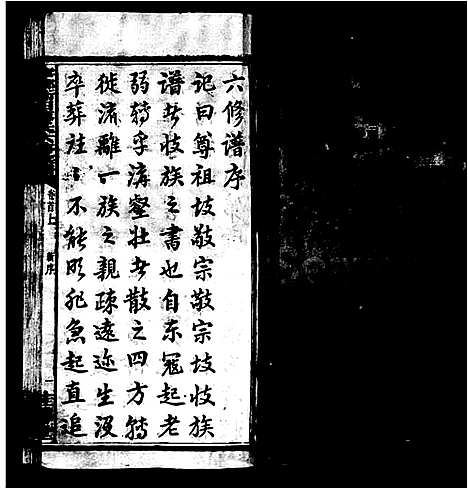 六修譜序
記曰尊祖故敬宗敬宗故收族
譜者收族之書也自東寇起老
弱轉乎溝壑壯者散之四方轉
徙流離一族之親疎遠迩生沒
卒葬注不能明非急起直追
卷首上
新序